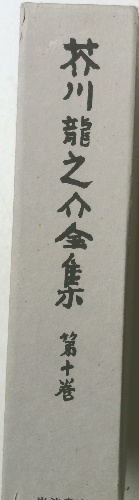 芥川龍之介全集 第十巻